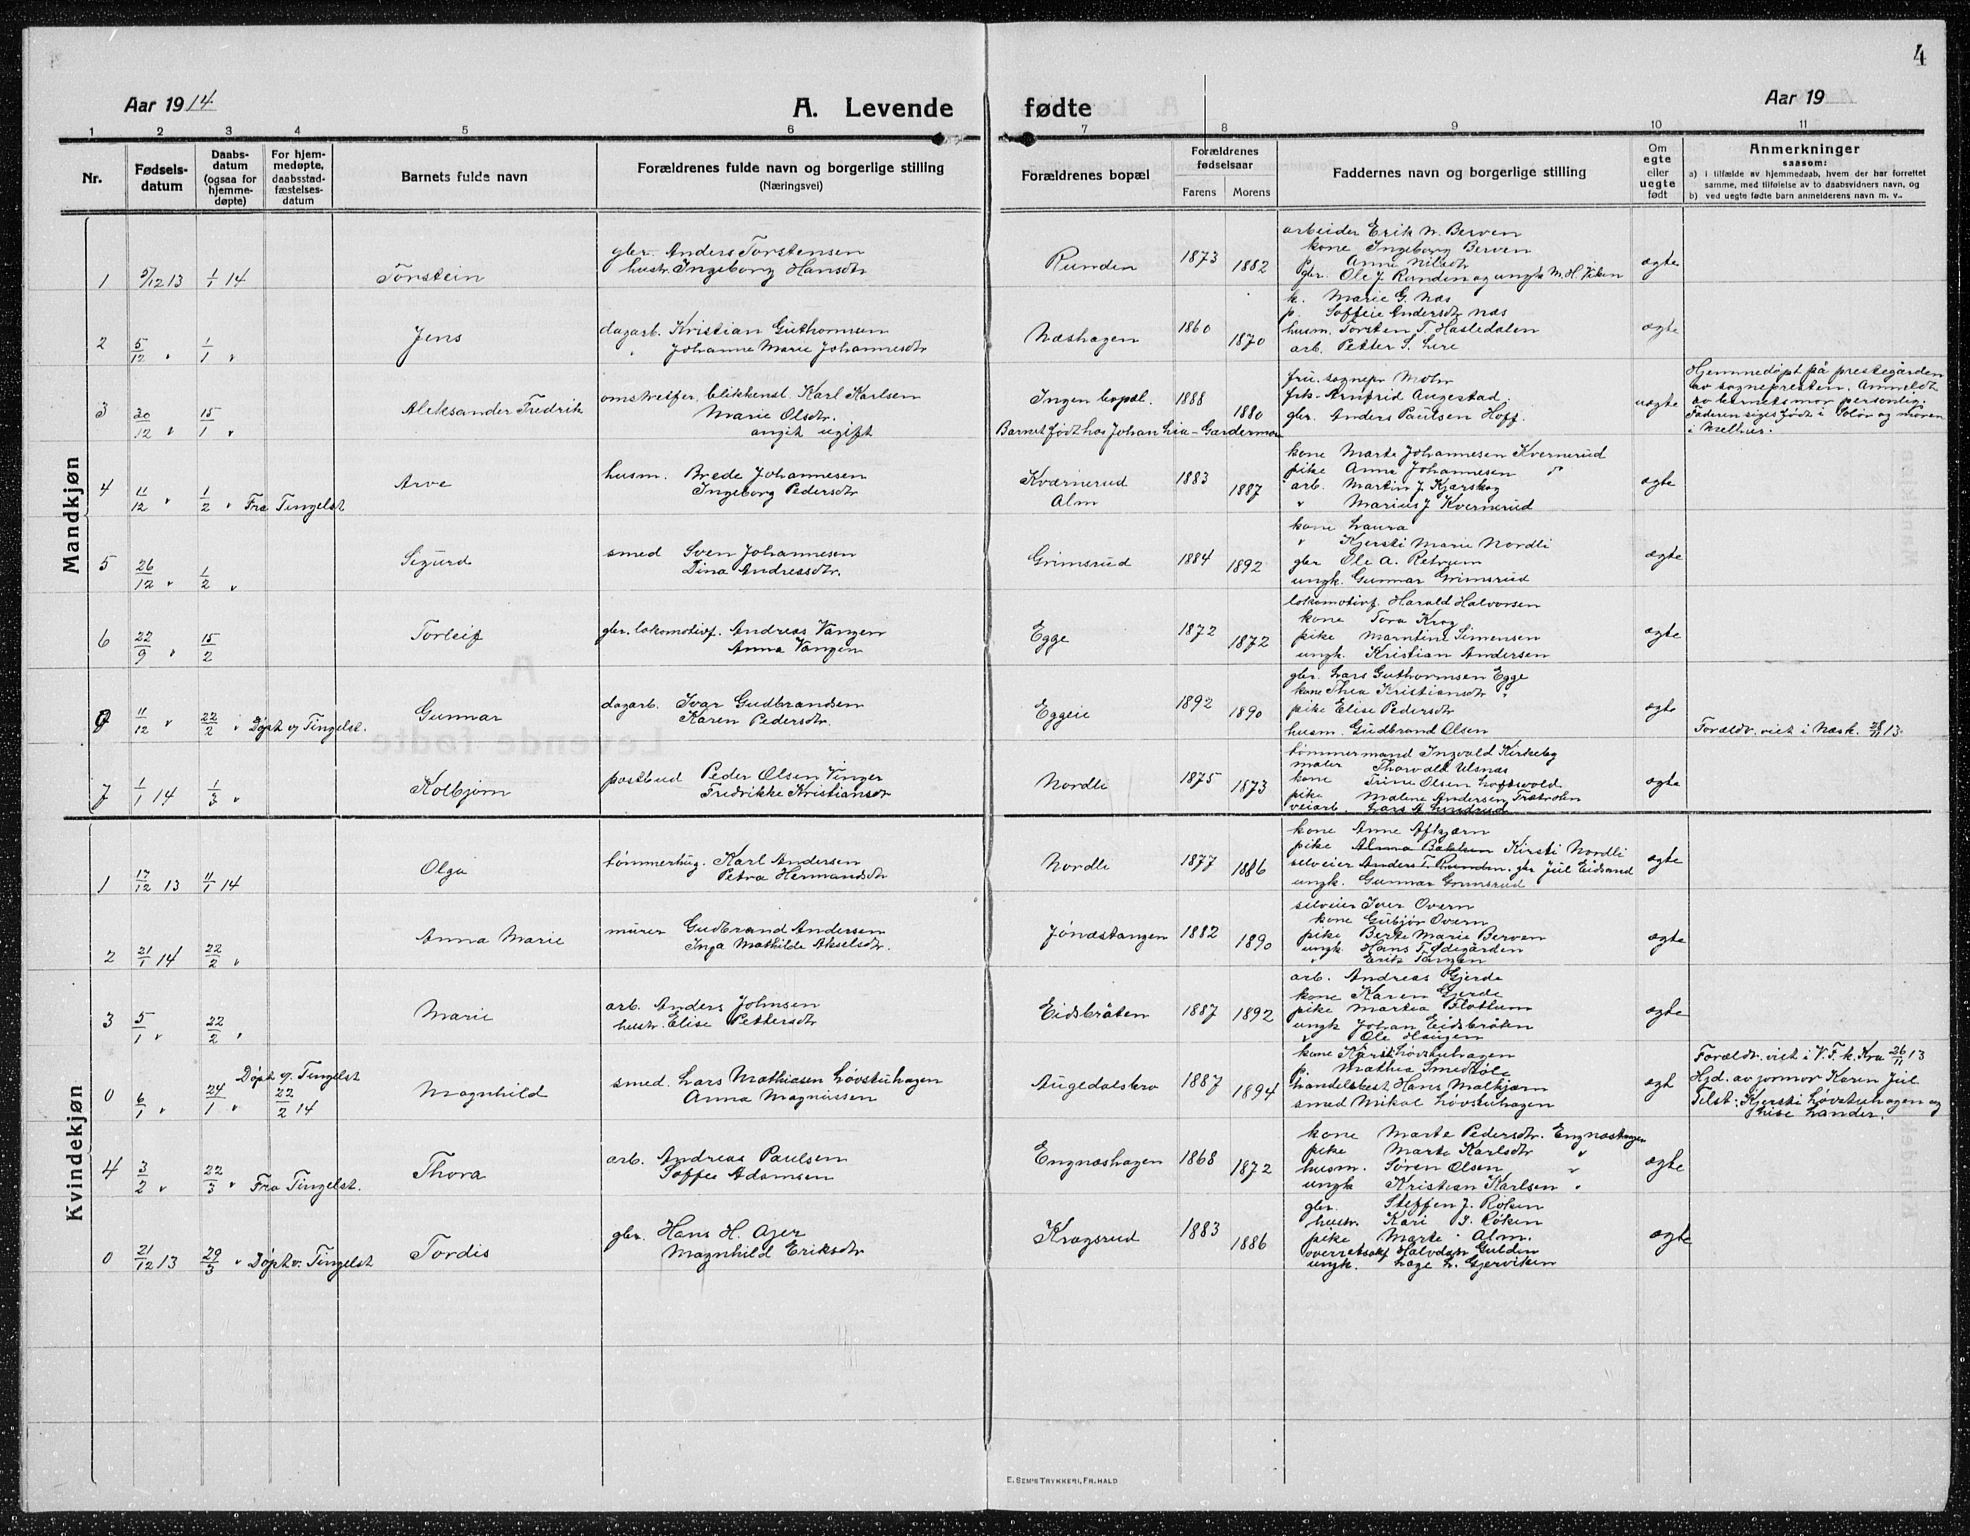 4
Aar 1914
A. Levende
fødte
Aar 19
1 2 3 4 5 6 7 8 9 10 11
Nr.
Fødsels-
datum
Daabs-
datum
(ogsaa for
hjemme-
døpte)
For hjem-
medøpte,
daabsstad-
fæstelses-
datum
Barnets fulde navn
Forældrenes fulde navn og borgerlige stilling
(Næringsvei)
Forældrenes bopæl
Forældrenes
fødselsaar
Farens Morens
Faddernes navn og borgerlige stilling
Om
egte
eller
uegte
født
Anmerkninger
saasom:
a) I tilfælde av hjemmedaab, hvem der har forrettet
samme, med tilføielse av to daabsvidners navn, og
b) ved uegte fødte barn anmelderens navn m. v.
Mandkjøn
1 5/12 13 1/1 14 Torstein
gbr. Anders Torstensen
hustr. Ingeborg Hansdtr
Runden 1873 1882
arbeider Erik N. Berven
kone Ingeborg Berven
p. Anne Nilsdtr
gbr. Ole J. Runden og ungk M. H. Viken
ægte
2 5/12 " 1/1 " Jens
dagarb. Kristian Guthormsen
" Johanne Marie Johannesdtr
Næshagen 1860 1870
k. Marie G. Næs
p. Soffeie Andersdtr Næs
husm. Torsten T. Hasledalen
arb. Petter S. Lere
ægte
3 30/12 " 15/1 " Aleksander Fredrik
omstreifer, blikkensl. Karl Karlsen
Marie Olsdtr.
angik ugift
Ingen bopæl. 1888 1880
Barnet født hos Johan Lia - Gardermoen
fru. sognepr Mohr
frk. Arnfrid Augestad
gbr. Anders Paulsen Hoff.
uægte
Hjemmedøpt på prestegården
av sognepresten. Anmeldt
av barnets mor personlig.
Faderen siges født i Solør og moren
i Melhus.
4 11/12 " 1/2 " Fra Tingelst Arve
husm. Brede Johannesen
Ingeborg Pedersdtr
Kværnerud
Alm
1883 1887
kone Marte Johannesen Kvernerud
pike Anna Johannesen "
arb. Martin J. Kjærskog
" Marius J Kvernerud
ægte
5 26/12 " 1/2 " Sigurd
smed Sven Johannesen
Dina Andreasdtr.
Grimsrud 1884 1892
kone Laura
" Kjersti Marie Nordli
gbr Ole A. Retrum
ungk. Gunnar Grimsrud
ægte
6 22/9 " 15/2 Torleif
gbr. lokomotivf. Andreas Vangen
Anna Vangen
Egge 1872 1872
lokomotivf. Harald Halvorsen
kone Tora Krog
pike Marntine Simensen
ungk. Kristian Andersen
ægte
0 11/12 " 22/2 " Døpt v/ Tingelst. Gunnar
dagarb. Ivar Gudbrandsen
Karen Pedersdtr.
Eggeie 1892 1890
gbr. Lars Guthormsen Egge
kone Thea Kristiansdtr "
pike Elise Pedersdtr
husm. Gudbrand Olsen
ægte
Forældr. viet i Næsk. 28/11 13.
7 1/1 14 1/3 " Kolbjørn
postbud Peder Olsen Vinger
Fredrikke Kristiansdtr
Nordli 1875 1873
tømmermand Ingvald Kirkeby
maler Thorvald Ulsnæs
kone Trine Olsen Loftsvold
pike Malene Andersen Trætrolen
veiarb. Lars A. Lundrud
ægte
Kvindekjøn
1 17/12 13 11/1 14 Olga
tømmerhug. Karl Andersen
Petra Hermansdtr
Nordli 1877 1886
kone Anne Afkjærn
pike Alma Bakken Kirsti Nordli
selveier Anders T. Runden. gbr Jul Eidsand
ungk. Gunnar Grimsrud
ægte
2 21/1 14 22/2 " Anna Marie
murer Gudbrand Andersen
Inga Mathilde Akselsdtr.
Jónæstangen 1882 1890
selveier Iver Overn
kone Gubjør Overn
pike Berte Marie Berven
ungk. Hans T. Ødegården
" Erik Tangen
ægte
3 5/1 " 22/2 " Marie
arb. Anders Johnsen
hustr. Elise Pettersdtr
Eidsbråten 1887 1892
arb. Andreas Gjerde
kone Karen Gjerde
pike Martea Flattum
ungk Johan Eidsbråten
" Ole Haugen
ægte
0 6/1 " 24/1 " Døpt v. Tingelst 22/2 14 Magnhild
smed. Lars Mathiasen Løvstuhagen
Anna Magnussen
Augedalsbro 1887 1894
kone Karsti Løvstuhagen
p. Mathea Smedsøle
handelsbest. Hans Malkjærn
smed Mikal Løvstuhagen
ægt
Forældr. viet i V. F. k. Kra 26/11 13
Hjd. av jormor Karen Jul
Tilst: Kjersti Løvstuhagen og
Lise Lander.
4 3/2 " 22/3 " Fra Tingelst. Thora
arb. Andreas Paulsen
Soffie Adamsen
Engnæshagen 1868 1872
kone Marte Pedersdtr. Engnæshagen
pike Marte Karlsdtr "
husm. Søren Olsen "
ungk Kristian Karlsen "
ægte
0 21/12 13 29/3 " Døpt v. Tingelst Tordis
gbr. Hans H. Ager
Magnhild Eriksdtr
Kragsrud 1883 1886
gbr. Steffen J. Røken
hustr. Kari J. Røken
pike Marte Alm.
overretssakf Halvdan Gulden
ungk. Lage L. Gjerviken
ægte
E. SEM'S TRYKKERI, FR.HALD